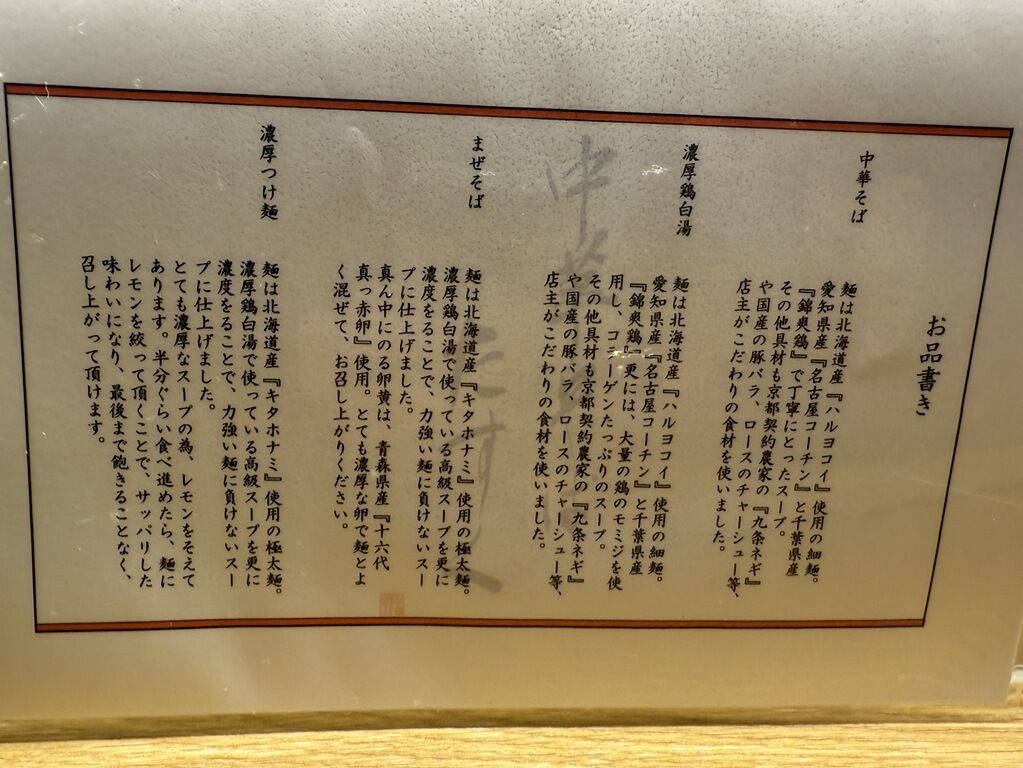 お品書き
中華そば
麺は北海道産『ハルヨコイ』使用の細麺。
愛知県産『名古屋コーチン』と千葉県産
『錦爽鶏』で丁寧にとったスープ。
その他具材も京都契約農家の『九条ネギ』
や国産の豚バラ、ロースのチャーシュー等、
店主がこだわりの食材を使いました。
濃厚鶏白湯
麺は北海道産『ハルヨコイ』使用の細麺。
愛知県産『名古屋コーチン』と千葉県産
『錦爽鶏』更には、大量の鶏のモミジを使
用し、コラーゲンたっぷりのスープ。
その他具材も京都契約農家の『九条ネギ』
や国産の豚バラ、ロースのチャーシュー等、
店主がこだわりの食材を使いました。
まぜそば
麺は北海道産『キタホナミ』使用の極太麺。
濃厚鶏白湯で使っている高級スープを更に
濃度をることで、力強い麺に負けないスー
プに仕上げました。
真ん中にのる卵黄は、青森県産『十六代
真っ赤卵』使用。とても濃厚な卵で麺とよ
く混ぜて、お召し上がりください。
濃厚つけ麺
麺は北海道産『キタホナミ』使用の極太麺。
濃厚鶏白湯で使っている高級スープを更に
濃度をることで、力強い麺に負けないスー
プに仕上げました。
とても濃厚なスープの為、レモンをそえて
あります。半分ぐらい食べ進めたら、麺に
レモンを絞って頂くことで、サッパリした
味わいになり、最後まで飽きることなく、
召し上がって頂けます。